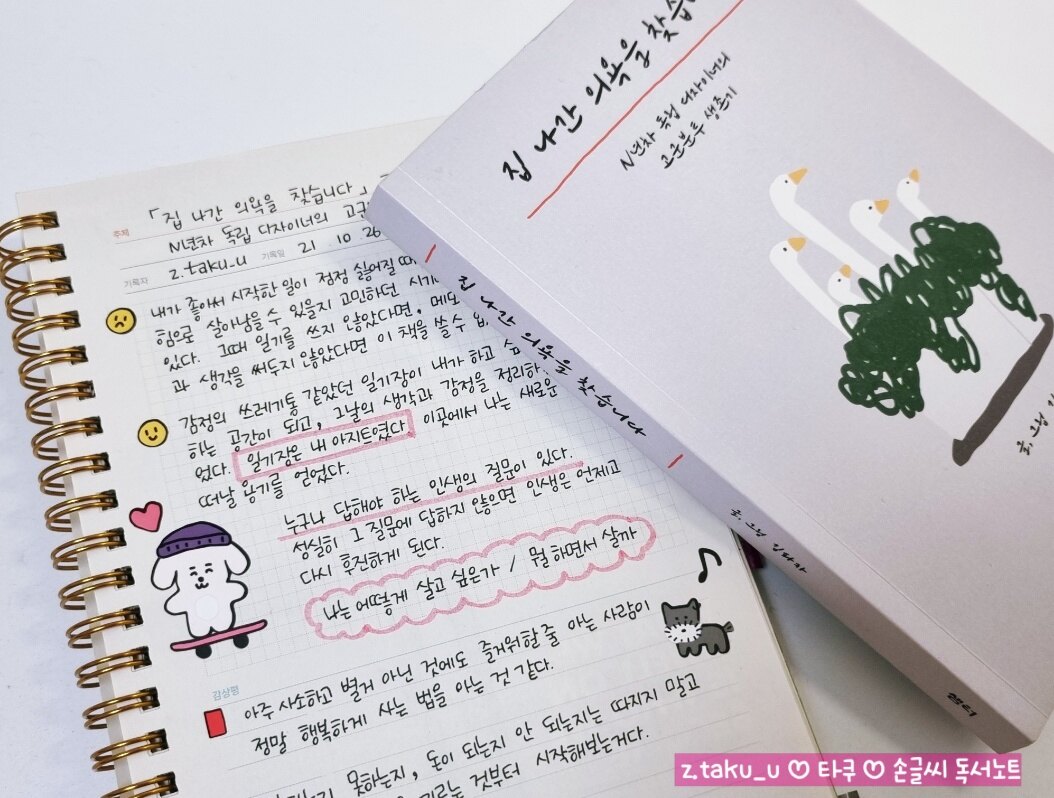 「집 나간 의욕을 찾습니다」
주제
N년차 독립 디자이너의 고군
기록자 z.taku_u 기록일 21 . 10 . 26
내가 좋아서 시작한 일이 점점 싫어질 때
힘으로 살아남을 수 있을지 고민하던 시기
있다. 그때 일기를 쓰지 않았다면, 메모
과 생각을 써두지 않았다면 이 책을 쓸 수 없
감정의 쓰레기통 같았던 일기장이 내가 하고 싶
하는 공간이 되고, 그날의 생각과 감정을 정리하
었다. 일기장은 내 아지트였다 이곳에서 나는 새로운
떠날 용기를 얻었다.
누구나 답해야 하는 인생의 질문이 있다.
성실히 그 질문에 답하지 않으면 인생은 언제고
다시 후진하게 된다.
나는 어떻게 살고 싶은가 / 뭘 하면서 살까
감상평
아주 사소하고 별거 아닌 것에도 즐거워할 줄 아는 사람이
정말 행복하게 사는 법을 아는 것 같다.
못하는지, 돈이 되는지 안 되는지는 따지지 말고
것부터 시작해보는거다.
집 나간 의욕을 찾습
N년차 독립 디자이너의
고군분투 생존기
글, 그림
집 나간 의욕을 찾습니다
글, 그림 김파카
z.taku_u ♡ 타쿠 ♡ 손글씨 독서노트